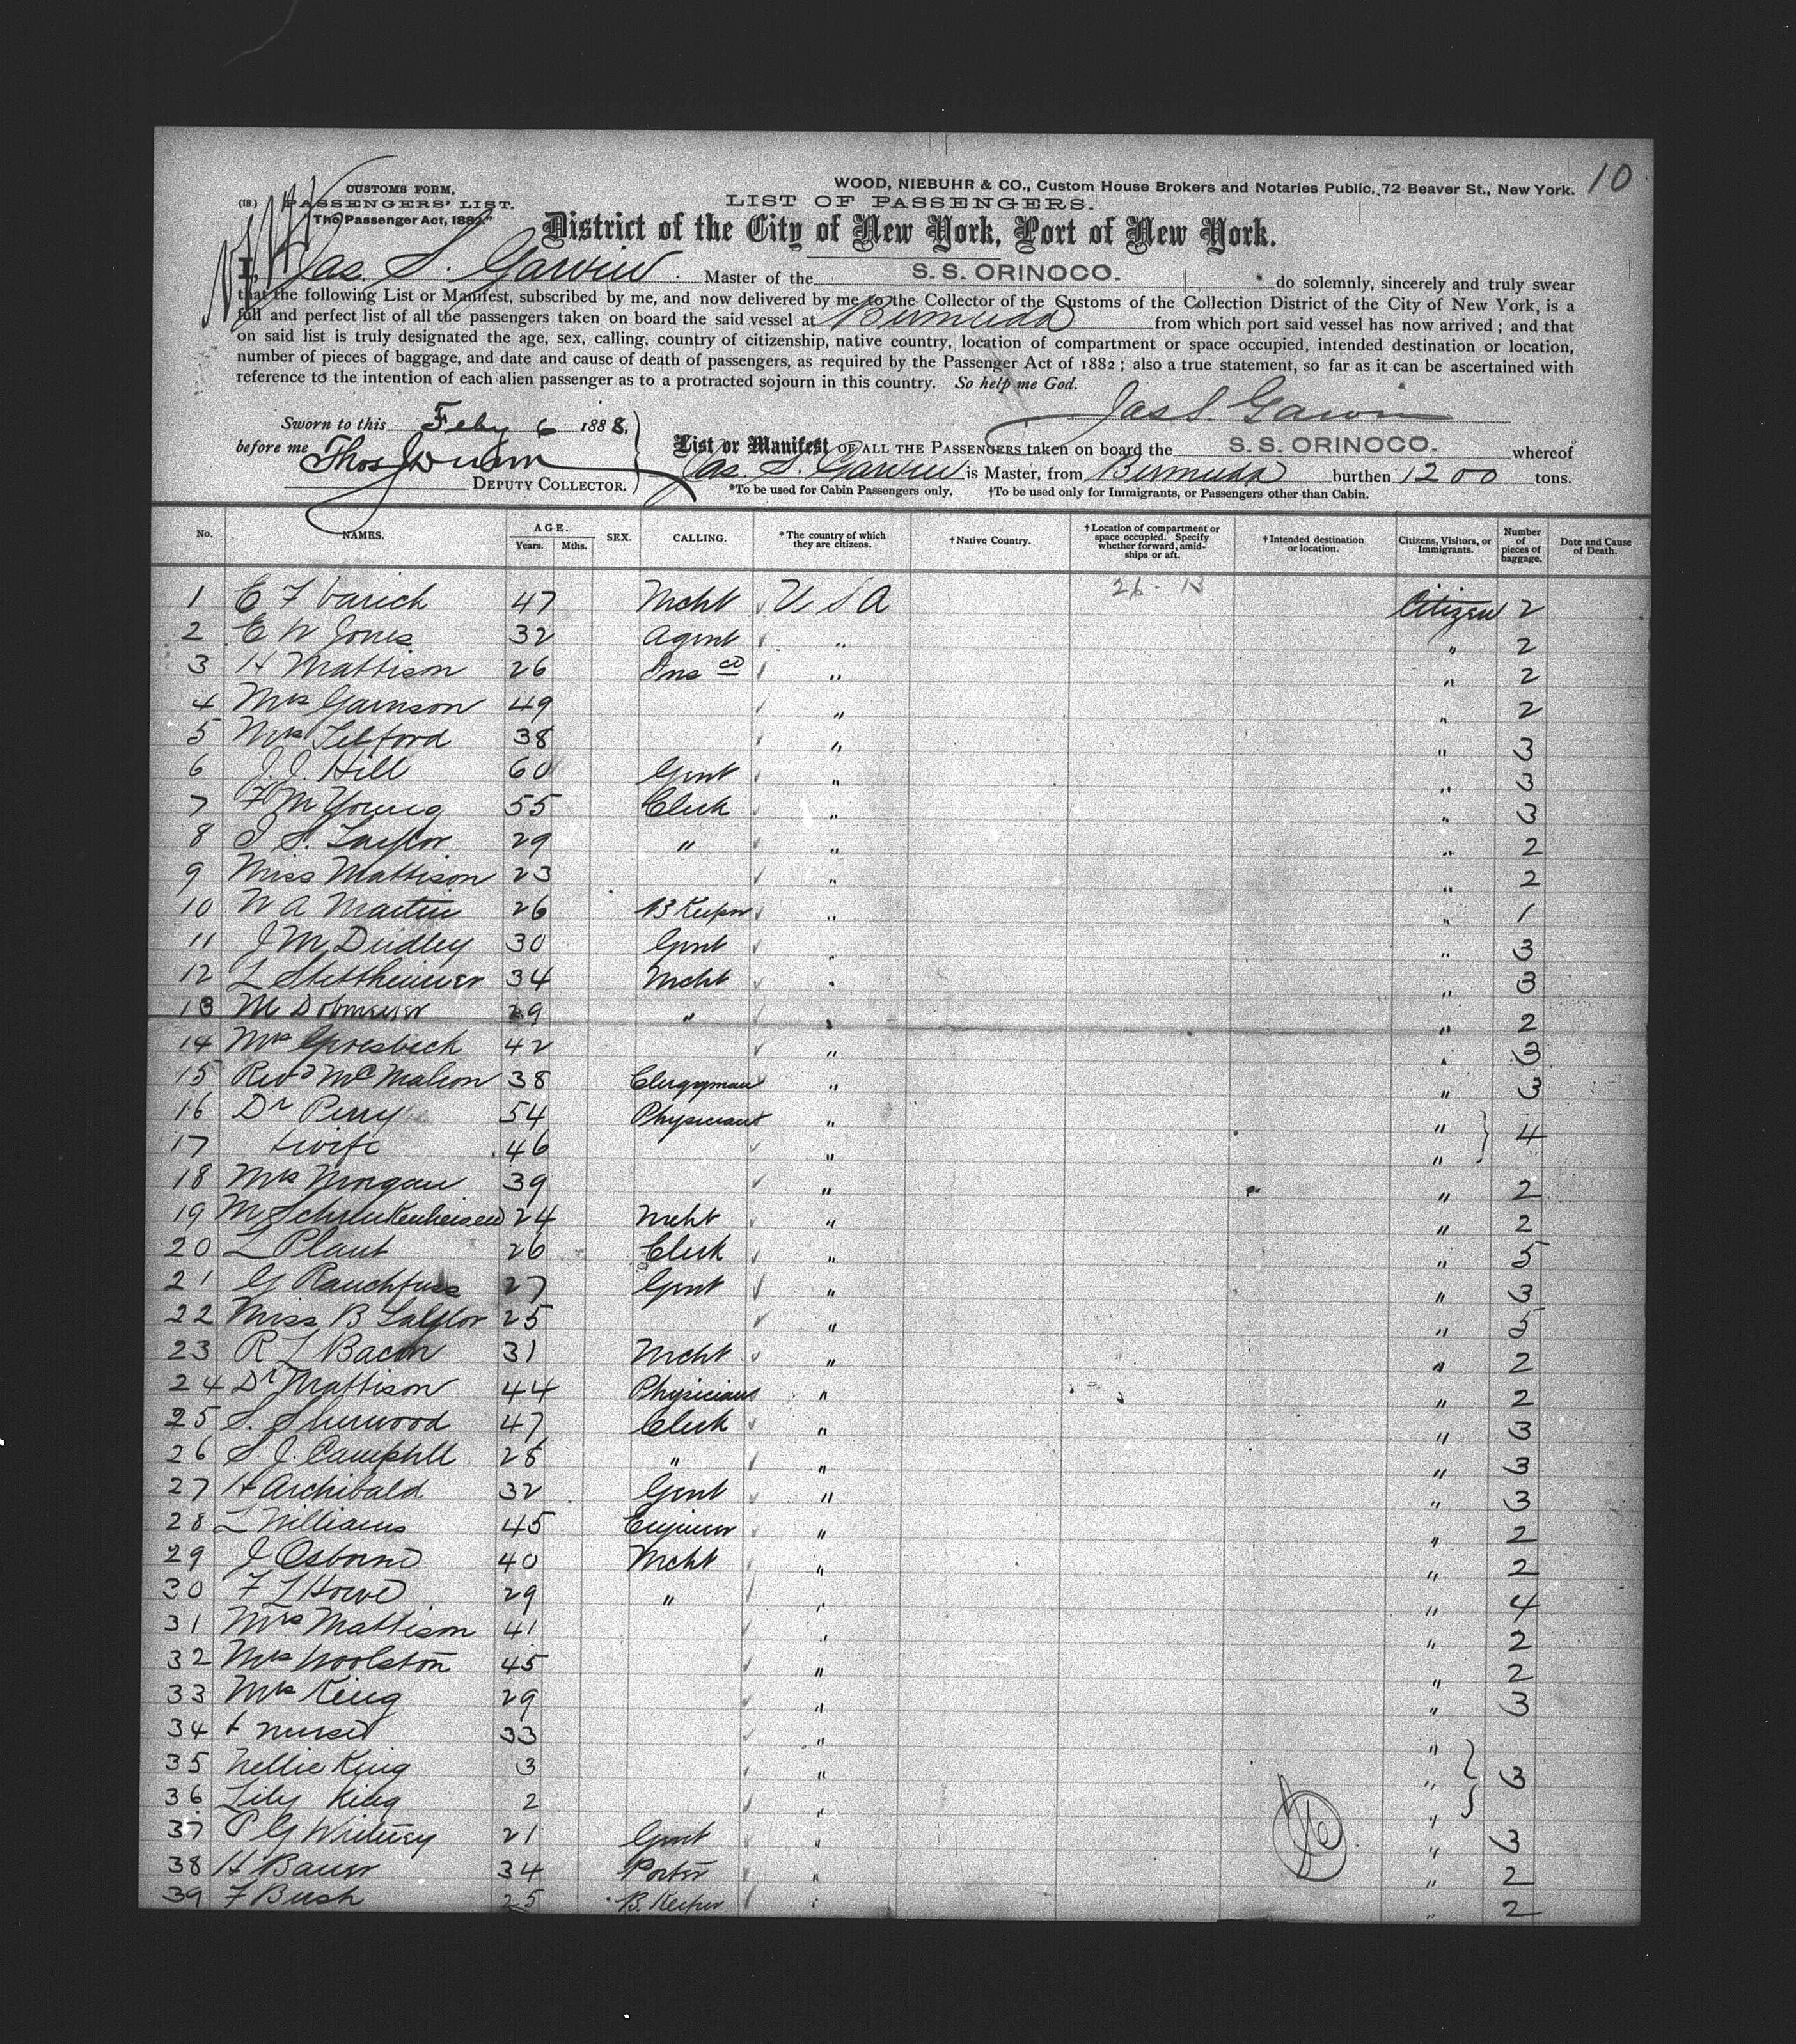 10
WOOD, NIEBUHR & CO., Custom House Brokers and Notaries Public, 72 Beaver St., New York.
CUSTOMS FORM,
(18) PASSENGERS' LIST.
"The Passenger Act, 1882."
LIST OF PASSENGERS.
District of the City of New York, Port of New York.
I, Jas. S. Garvin Master of the S. S. ORINOCO. do solemnly, sincerely and truly swear
that the following List or Manifest, subscribed by me, and now delivered by me to the Collector of the Customs of the Collection District of the City of New York, is a
full and perfect list of all the passengers taken on board the said vessel at Bermuda from which port said vessel has now arrived; and that
on said list is truly designated the age, sex, calling, country of citizenship, native country, location of compartment or space occupied, intended destination or location,
number of pieces of baggage, and date and cause of death of passengers, as required by the Passenger Act of 1882; also a true statement, so far as it can be ascertained with
reference to the intention of each alien passenger as to a protracted sojourn in this country. So help me God.
Jas S. Garvin
Sworn to this Feby 6 1888,
before me Thos J Dunn
DEPUTY COLLECTOR.
List or Manifest OF ALL THE PASSENGERS taken on board the S. S. ORINOCO. whereof
Jas. S. Garvin is Master, from Bermuda burthen 1200 tons.
*To be used for Cabin Passengers only. †To be used only for Immigrants, or Passengers other than Cabin.
No. NAMES. AGE. Years. Mths. SEX. CALLING. *The country of which they are citizens. †Native Country. †Location of compartment or space occupied. Specify whether forward, amidships or aft. †Intended destination or location. Citizens, Visitors, or Immigrants. Number of pieces of baggage. Date and Cause of Death.
26 - 13
1 E F Varich 47 Mcht U S A Citizen 2
2 E W Jones 32 Agent " " 2
3 H Mattison 26 Ins co " " 2
4 Mrs Garnson 49 " " 2
5 Mrs Telford 38 " " 3
6 J. J. Hill 60 Gent " " 3
7 F M Young 55 Clerk " " 3
8 J S. Taylor 29 " " " 2
9 Miss Mattison 23 " " 2
10 W A Martin 26 B Keeper " " 1
11 J M Dudley 30 Gent " " 3
12 L Stettheimer 34 Mcht " " 3
13 M Dobmeyer 29 " " " 2
14 Mrs Groesbeck 42 " " 3
15 Revd McMahon 38 Clergyman " " 3
16 Dr Perry 54 Physician " " 4
17 + wife 46 " "
18 Mrs Morgan 39 " " 2
19 M Schrenkenheisen 24 Mcht " " 2
20 L Plaut 26 Clerk " " 5
21 G Rauchfuss 27 Gent " " 3
22 Miss B Taylor 25 " " 5
23 R L Bacon 31 Mcht " " 2
24 Dr Mattison 44 Physician " " 2
25 S. Sherwood 47 Clerk " " 3
26 S. J. Campbell 28 " " " 3
27 H Archibald 32 Gent " " 3
28 L Williams 45 Engineer " " 2
29 J Osborne 40 Mcht " " 2
30 F L Howe 29 " " " 4
31 Mrs Mattison 41 " " 2
32 Mrs Woolston 45 " " 2
33 Mrs King 29 " " 3
34 + nurse 33 " "
35 Nellie King 3 " " 3
36 Lily King 2 " "
37 P G Whitney 21 Gent " " 3
38 H Bauer 34 Porter " " 2
39 F Bush 25 B. Keeper " " 2